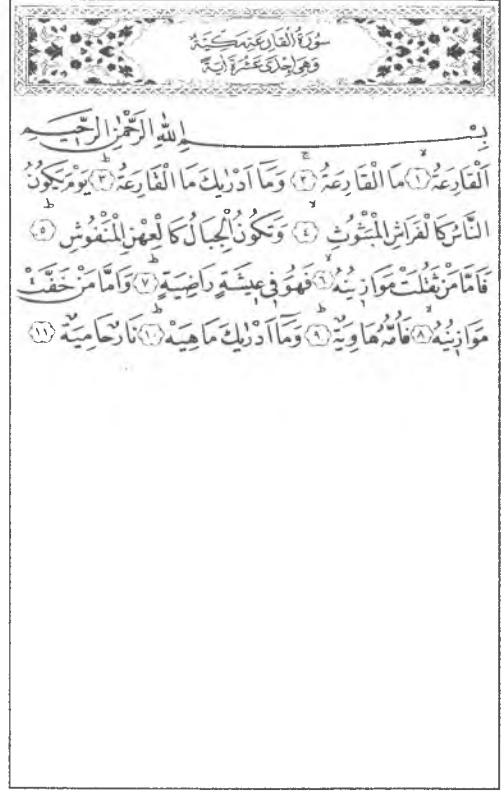 سُورَةُ الْقَارِعَةِ مَكِّيَّةٌ
وَهِيَ إِحْدَى عَشْرَةَ آيَةً
بِسْمِ اللّٰهِ الرَّحْمٰنِ الرَّحِيمِ
اَلْقَارِعَةُۙ ﴿١﴾ مَا الْقَارِعَةُۚ ﴿٢﴾ وَمَٓا اَدْرٰيكَ مَا الْقَارِعَةُۜ ﴿٣﴾ يَوْمَ يَكُونُ
النَّاسُ كَالْفَرَاشِ الْمَبْثُوثِۙ ﴿٤﴾ وَتَكُونُ الْجِبَالُ كَالْعِهْنِ الْمَنْفُوشِۜ ﴿٥﴾
فَاَمَّا مَنْ ثَقُلَتْ مَوَازٖينُهُۙ ﴿٦﴾ فَهُوَ فٖي عٖيشَةٍ رَاضِيَةٍۜ ﴿٧﴾ وَاَمَّا مَنْ خَفَّتْ
مَوَازٖينُهُۙ ﴿٨﴾ فَاُمُّهُ هَاوِيَةٌۜ ﴿٩﴾ وَمَٓا اَدْرٰيكَ مَا هِيَهْۜ ﴿١٠﴾ نَارٌ حَامِيَةٌ ﴿١١﴾